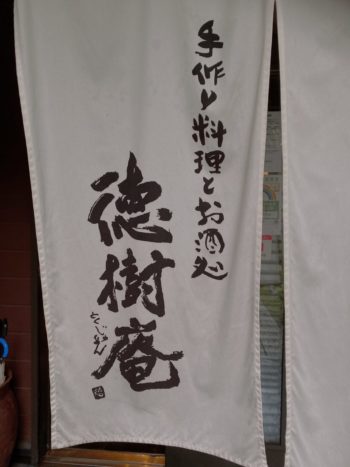 手作り料理とお酒処
徳樹庵
とくじゅあん